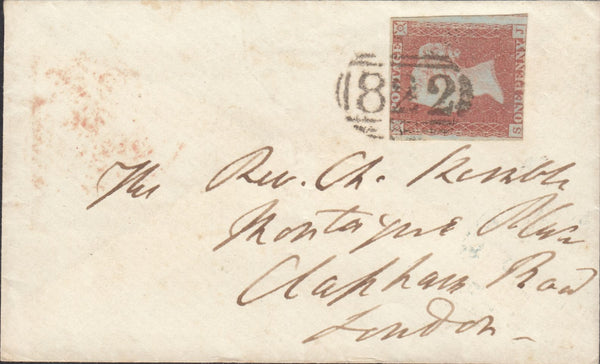 POSTAGE
ONE PENNY
J
S
842
The Rev. Ch. Kemble
Montague Place
Clapham Road
London